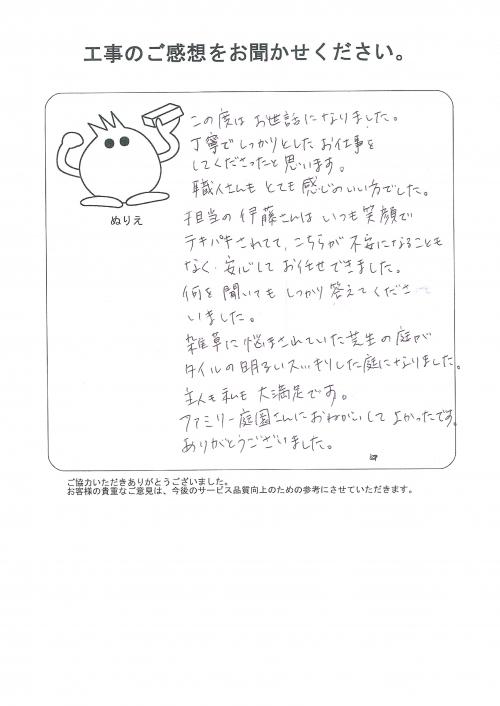 工事のご感想をお聞かせください。
ぬりえ
この度は お世話になりました。
丁寧で しっかりとした お仕事を
してくださったと 思います。
職人さんも とても 感じのいい方でした。
担当の 伊藤さんは いつも 笑顔で
テキパキされてて、こちらが 不安になることも
なく 安心して お任せできました。
何を 聞いても しっかり 答えてくださ
いました。
雑草に 悩まされていた 芝生の 庭が
タイルの 明るいスッキリした 庭になりました。
主人も 私も 大満足です。
ファミリー庭園さんに おねがいして よかったです。
ありがとうございました。
ご協力いただきありがとうございました。
お客様の貴重なご意見は、今後のサービス品質向上のための参考にさせていただきます。